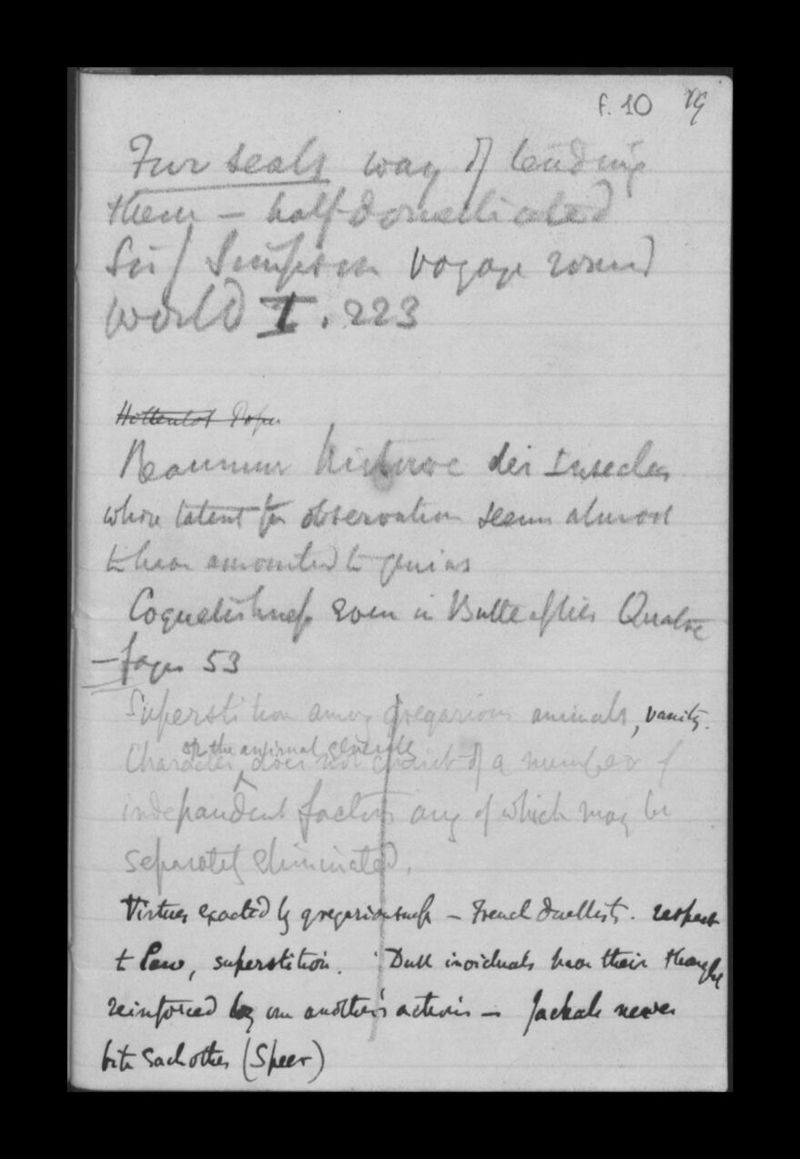 f. 10
Fur seals way of tending
them — half domesticated
Sir / Simpson voyage round
world I. 223
Hottentot Pope
Reaumur histoire des Insectes
whose talent for observation seems almost
to have amounted to genius
Coquetishness even in Butterflies Quatre
— fages 53
Superstition among gregarious animals, vanity.
or the animal generally
Character does not consist of a number of
independant factors any of which may be
separately eliminated.
Virtues exacted by gregariousness — French duellists. respect
to law, superstition. Dull individuals have their thoughts
reinforced by one another's actions — Jackals never
bite each other (Speer)